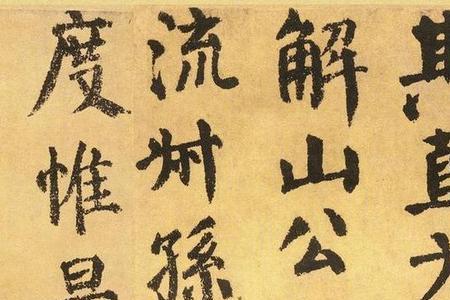 直
解山公
流州孫
度惟